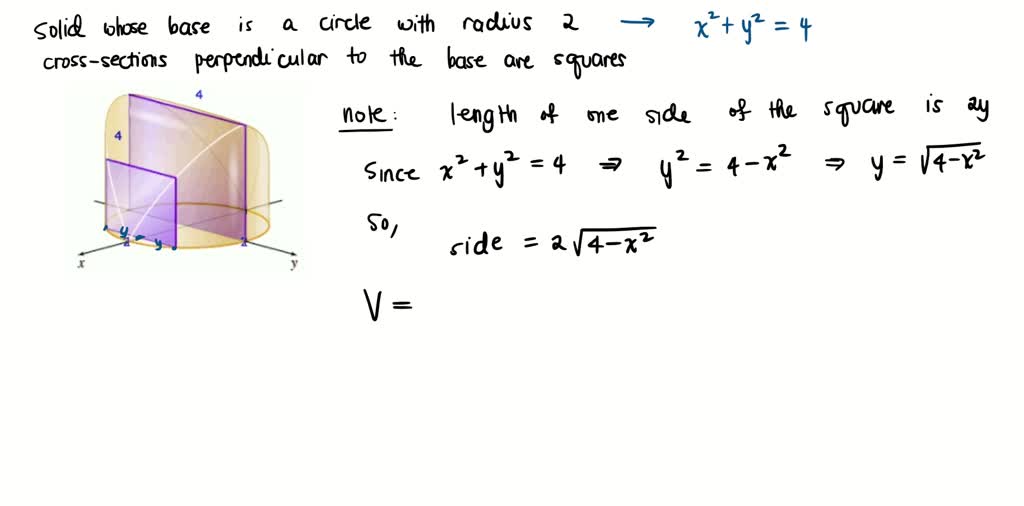 solid whose base is a circle with radius 2 → x² + y² = 4
cross-sections perpendicular to the base are squares
4
note: length of one side of the square is 2y
4
since x² + y² = 4 ⇒ y² = 4 − x² ⇒ y = √(4−x²)
so,
y y
2 2
side = 2√(4−x²)
x y
V =